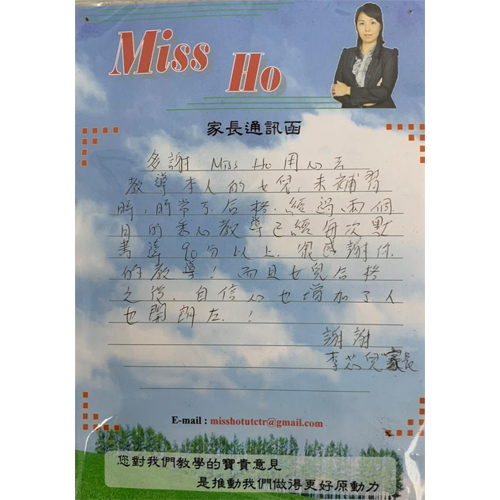 Miss Ho
家長通訊函
多謝 Miss Ho 用心去
教導本人的女兒，未補習
時，時常不合格．經過兩個
月的悉心教學已經每次默
書達90分以上．很感謝你
的教導！而且女兒合格
之後，自信心也增加了人
也開朗左．！
謝謝
李芯兒家長
E-mail : misshotutctr@gmail.com
您對我們教學的寶貴意見
是推動我們做得更好原動力